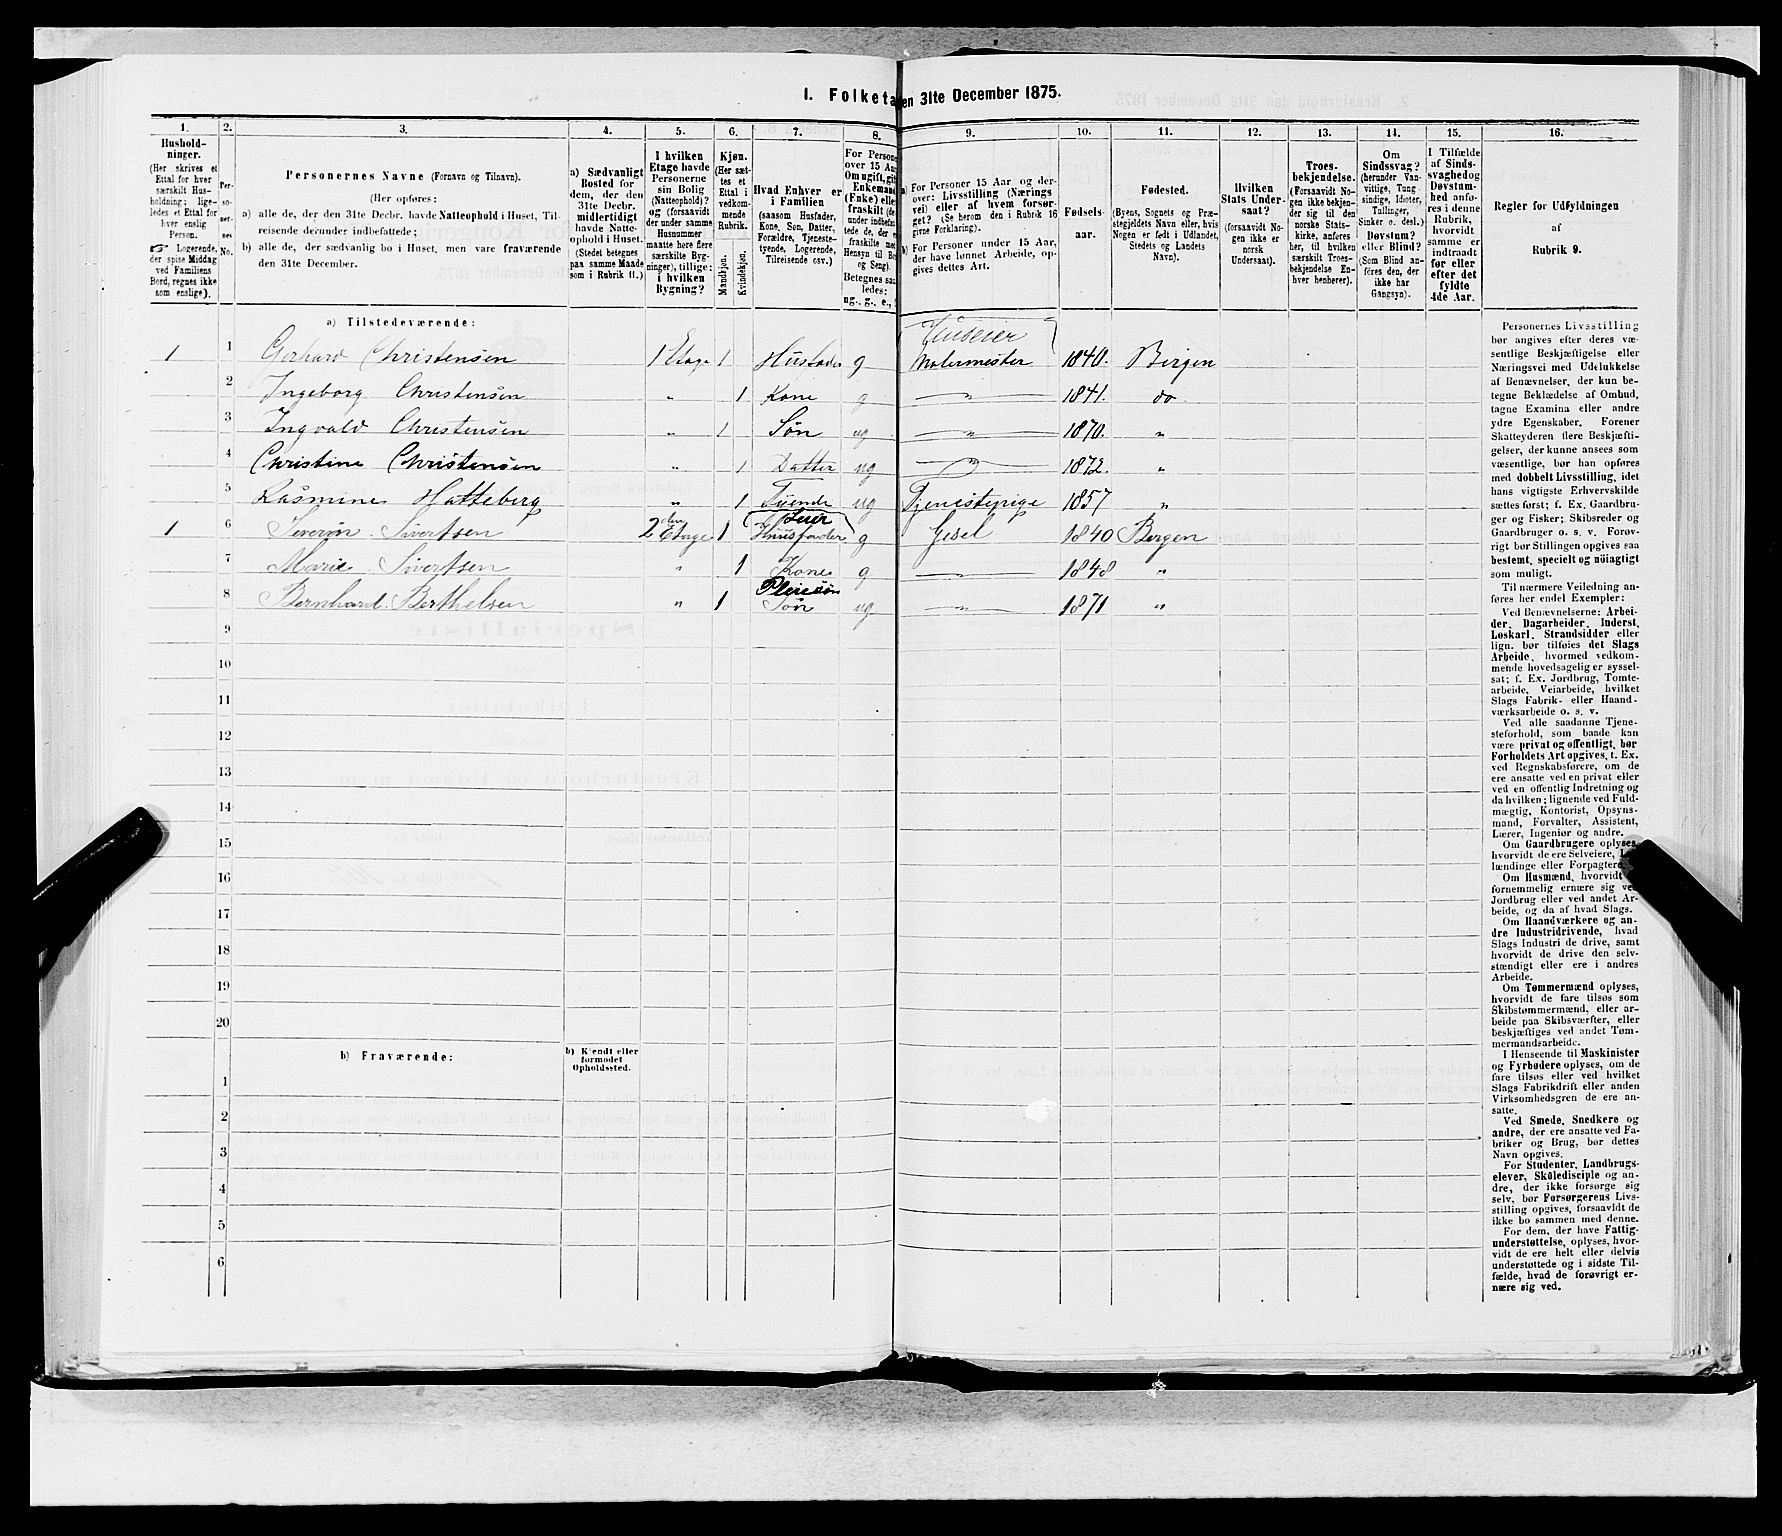 1. Folketa en 31te December 1875.
1. 2. 3. 4. 5. 6. 7. 8. 9. 10. 11. 12. 13. 14. 15. 16.
Hushold-
ninger.
(Her skrives et
Ettal for hver
særskilt Hus-
holdning; lige-
ledes et Ettal for
hver enslig
Person.
☞ Logerende,
der spise Middag
ved Familiens
Bord, regnes ikke
som enslige).
Per-
so-
ner-
nes
No.
Personernes Navne (Fornavn og Tilnavn).
(Her opføres:
a) alle de, der den 31te Decbr. havde Natteophold i Huset, Til-
reisende derunder indbefattede;
b) alle de, der sædvanlig bo i Huset, men vare fraværende
den 31te December.
a) Sædvanligt
Bosted for
dem, der den
31te Decbr.
midlertidigt
havde Natte-
ophold i Huset.
(Stedet betegnes
paa samme Maade
som i Rubrik 11.)
I hvilken
Etage havde
Personerne
sin Bolig
(Natteophold)?
og (forsaavidt
der under samme
Husnummer
maatte høre flere
særskilte Byg-
ninger), tillige:
i hvilken
Bygning?
Kjøn.
(Her sæt-
tes et
Ettal i
vedkom-
mende
Rubrik.
Mandkjøn.
Kvindekjøn.
Hvad Enhver er
i Familien
(saasom Husfader,
Kone, Søn, Datter,
Forældre, Tjeneste-
tyende, Logerende,
Tilreisende osv.)
For Persone
over 15 Aar
Om ugift, gift
Enkemand
(Enke) elle
fraskilt (de
under indbefat-
tede de, der e
fraskilte me
Hensyn til Bo
og Seng).
Betegnes saa
ledes:
ug., g., e.,
a) For Personer 15 Aar og der-
over: Livsstilling (Nærings
vei) eller af hvem forsør-
get? (Se herom den i Rubrik 16
givne Forklaring).
b) For Personer under 15 Aar,
der have lønnet Arbeide, op-
gives dettes Art.
Fødsels-
aar.
Fødested.
(Byens, Sognets og Præ-
stegjeldets Navn eller, hvis
Nogen er født i Udlandet,
Stedets og Landets
Navn).
Hvilken
Stats Under-
saat?
(forsaavidt No-
gen ikke er
norsk
Undersaat).
Troes-
bekjendelse.
(Forsaavidt No-
gen ikke bekjen-
der sig til den
norske Stats-
kirke, anføres
her, til hvilken
særskilt Troes-
bekjendelse En-
hver henhører).
Om
Sindssvag?
(herunder Van-
vittige, Tung-
sindige, Idioter,
Tullinger,
Sinker o. desl.)
Døvstum?
eller Blind?
(Som Blind an-
føres den, der
ikke har
Gangsyn).
I Tilfælde
af Sinds-
svaghed og
Døvstum-
hed anfø-
res i denne
Rubrik,
hvorvidt
samme er
indtraadt
før eller
efter det
fyldte
4de Aar.
Regler for Udfyldningen
af
Rubrik 9.
a) Tilstedeværende:
Huseier
1 1 Gerhard Christensen 1 Etage 1 Husfader g Malermester 1840. Bergen
2 Ingeborg Christensen " 1 Kone g " 1841. do
3 Ingvald Christensen " 1 Søn ug " 1870. "
4 Christine Christensen " 1 Datter ug " 1872. "
5 Rasmine Hatteberg " 1 Tyende ug Tjenestepige 1857 "
1 6 Severin Sivertsen 2den Etage 1 Husfader g 1840 Bergen
7 Marie Sivertsen " 1 Kone g 1848 "
Pleiesøn
8 Bernhard Berthelsen " 1 Søn ug " 1871 "
9
10
11
12
13
14
15
16
17
18
19
20
b) Fraværende:
b) Kjendt eller
formodet
Opholdssted.
1
2
3
4
5
6
Personernes Livsstilling
bør angives efter deres væ-
sentlige Beskjæftigelse eller
Næringsvei med Udelukkelse
af Benævnelser, der kun be-
tegne Beklædelse af Ombud,
tagne Examina eller andre
ydre Egenskaber. Forener
Skatteyderen flere Beskjæfti-
gelser, der kunne ansees som
væsentlige, bør han opføres
med dobbelt Livsstilling, idet
hans vigtigste Erhvervskilde
sættes først; f. Ex. Gaardbru-
ger og Fisker; Skibsreder og
Gaardbruger o. s. v. Forøv-
rigt bør Stillingen opgives saa
bestemt, specielt og nöiagtigt
som muligt.
Til nærmere Veiledning an-
føres her endel Exempler:
Ved Benævnelserne: Arbei-
der, Dagarbeider, Inderst,
Løskarl, Strandsidder eller
lign. bør tilføies det Slags
Arbeide, hvormed vedkom-
mende hovedsagelig er syssel-
sat; f. Ex. Jordbrug, Tomte-
arbeide, Veiarbeide, hvilket
Slags Fabrik- eller Haand-
værksarbeide o. s. v.
Ved alle saadanne Tjene-
steforhold, som baade kan
være privat og offentligt, bør
Forholdets Art opgives, t. Ex.
ved Regnskabsførere, om de
ere ansatte ved en privat eller
ved en offentlig Indretning og
da hvilken; lignende ved Fuld-
mægtig, Kontorist, Opsyns-
mand, Forvalter, Assistent,
Lærer, Ingeniør og andre.
Om Gaardbrugere oplyses,
hvorvidt de ere Selveiere,
lændinge eller Forpagtere.
Om Husmænd, hvorvidt
fornemmelig ernære sig ved
Jordbrug eller ved andet Ar-
beide, og da af hvad Slags.
Om Haandværkere og an-
dre Industridrivende, hvad
Slags Industri de drive, samt
hvorvidt de drive den selv-
stændigt eller ere i andres
Arbeide.
Om Tømmermænd oplyses,
hvorvidt de fare tilsøs som
Skibstømmermænd, eller ar-
beide paa Skibsværfter, eller
beskjæftiges ved andet Tøm-
mermandsarbeide.
I Henseende til Maskinister
og Fyrbødere oplyses, om de
fare tilsøs eller ved hvilket
Slags Fabrikdrift eller anden
Virksomhedsgren de ere an-
satte.
Ved Smede, Snedkere og
andre, der ere ansatte ved Fa-
briker og Brug, bør dettes
Navn opgives.
For Studenter, Landbrugs-
elever, Skoledisciple og an-
dre, der ikke forsørge sig
selv, bør Forsørgerens Livs-
stilling opgives, forsaavidt de
ikke bo sammen med denne.
For dem, der have Fattig-
understøttelse, oplyses, hvor-
vidt de ere helt eller delvis
understøttede og i sidste Til-
fælde, hvad de forøvrigt er-
nære sig ved.